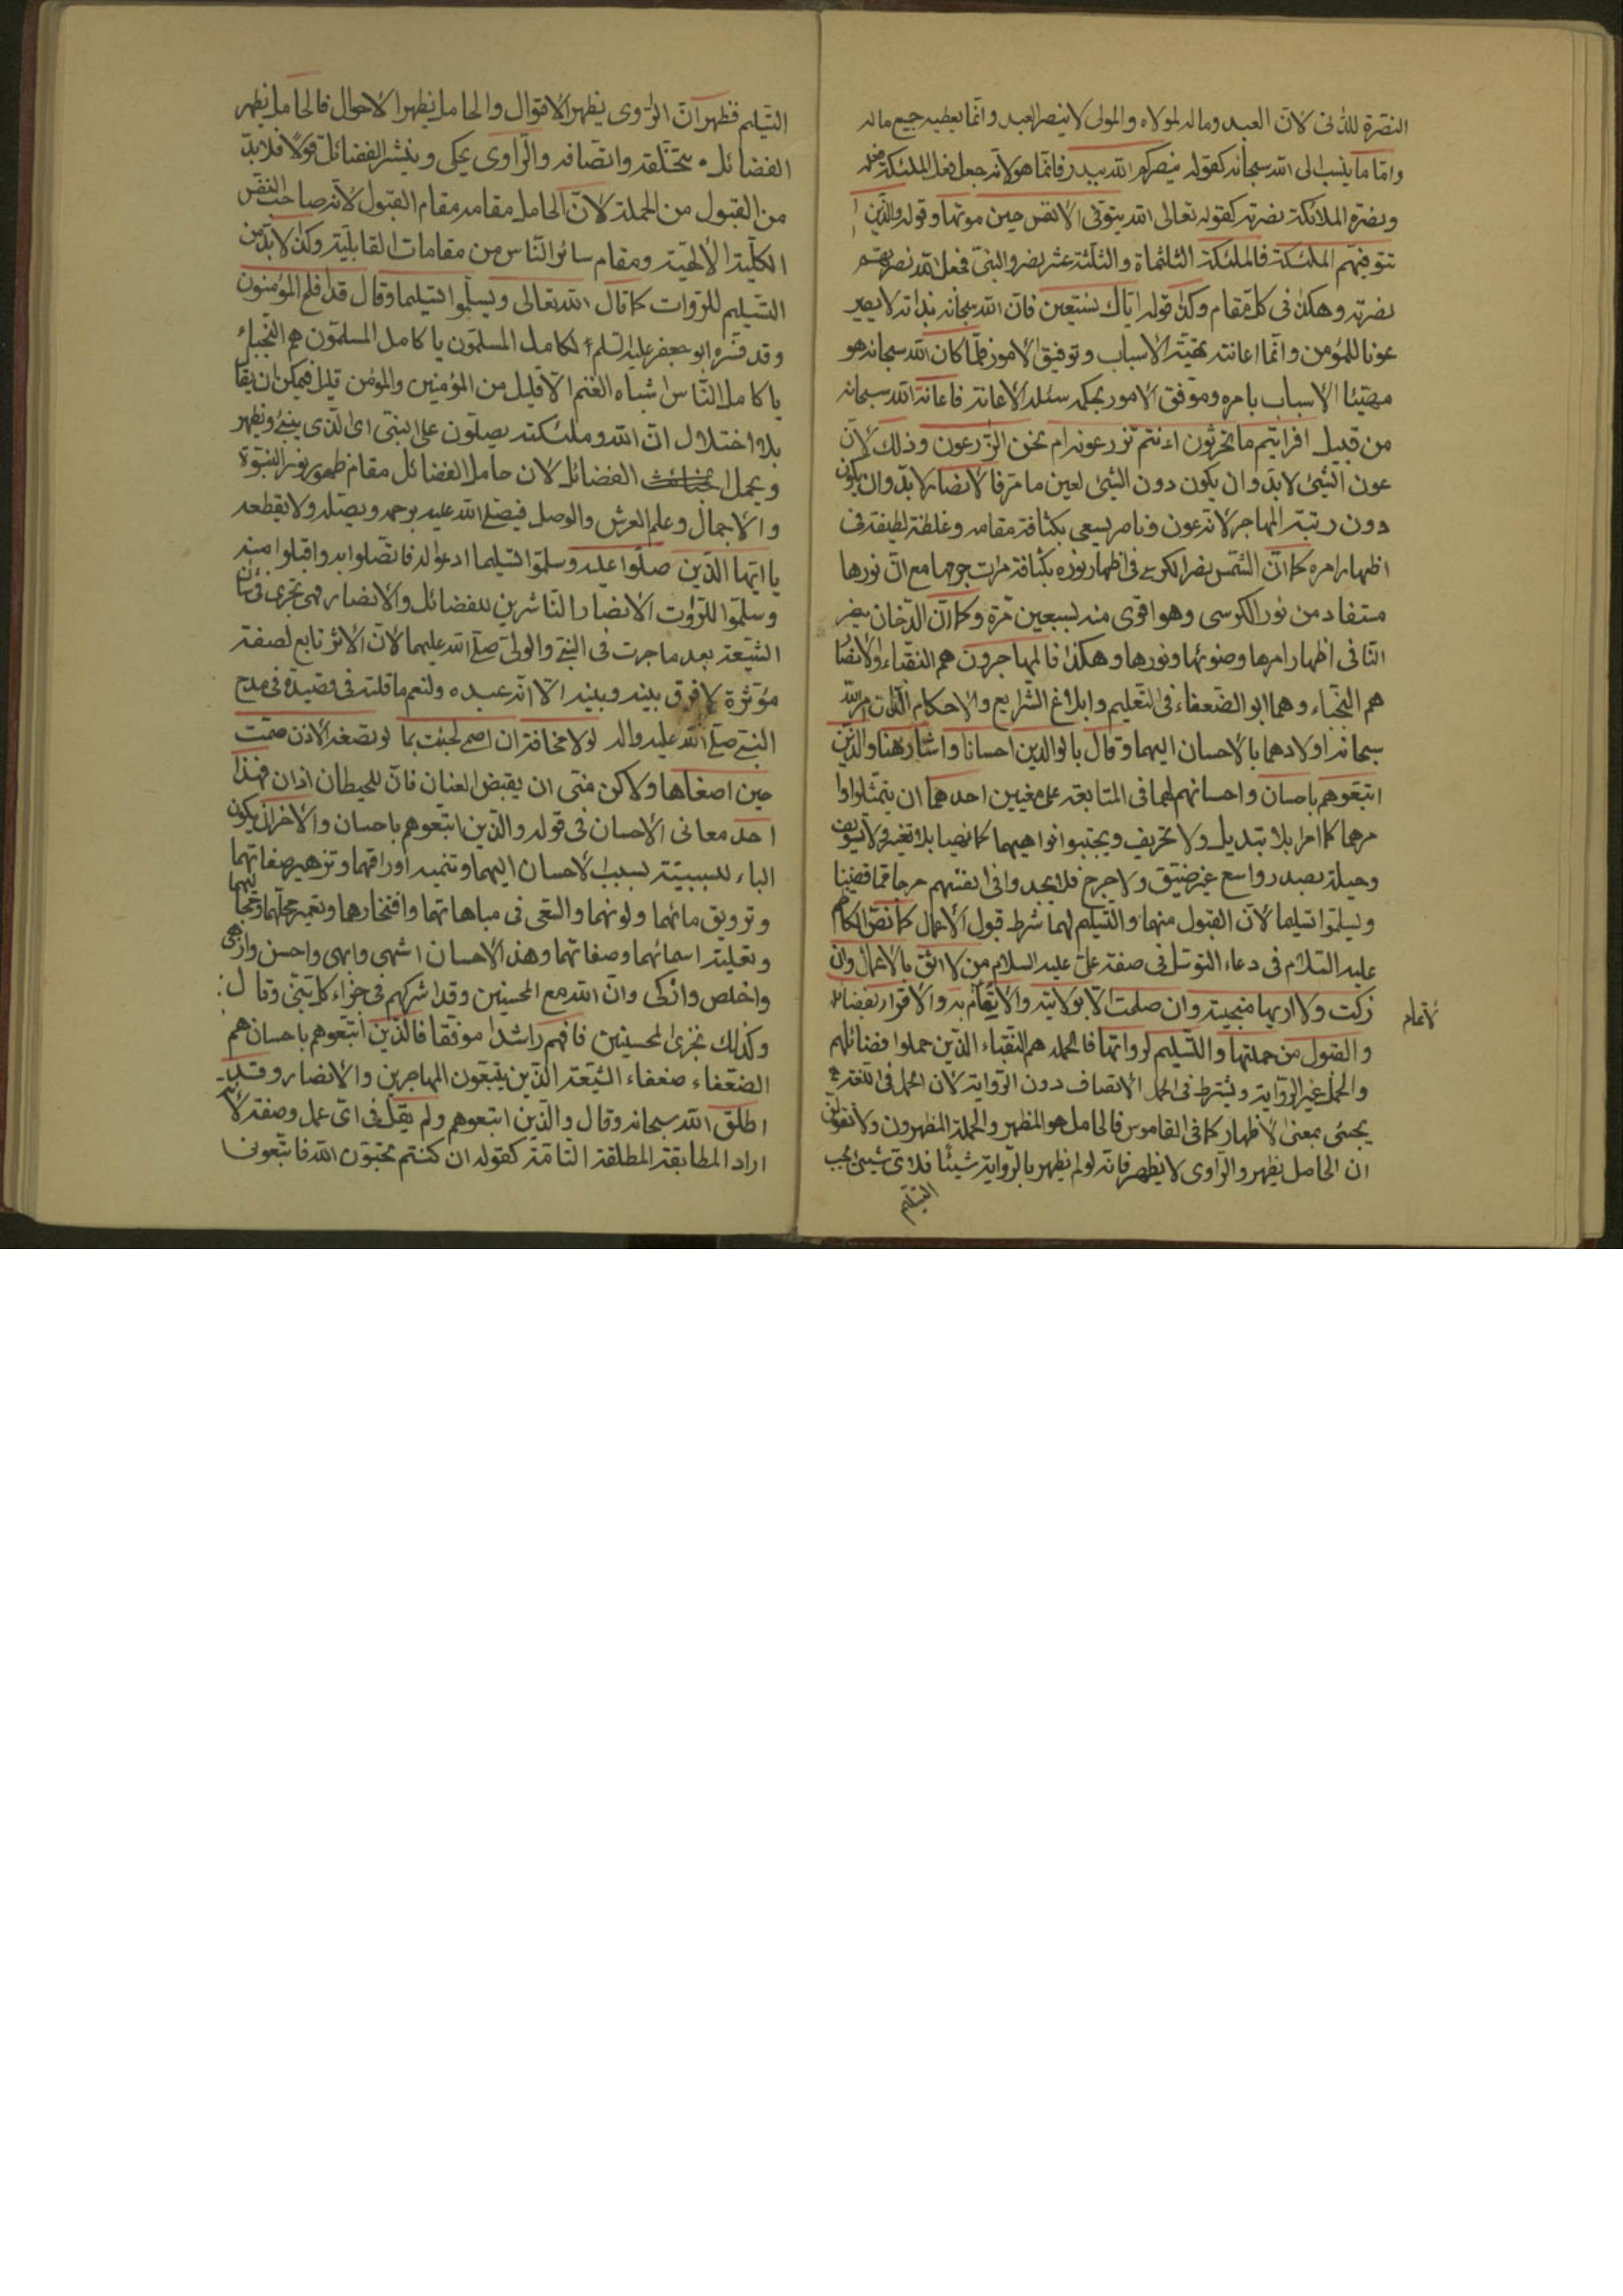 النصّرة للدّنى لانّ العبد وماله لمولاه والمولى لا ينصر العبد وانّما يعطيه جميع ماله
وامّا ما ينسب الى الله سبحانه كقوله فينصركم الله ببدر فانّما هو لانّه جعل فعل الملئكة فعله
ونصرة الملائكة نصرته كقوله تعالى الله يتوفّى الانفس حين موتها وقوله والّذين
تتوفيهم الملئكة فالملئكة الثلثمأة والثلثة عشر نصروا النبىّ فجعل الله نصرهم
نصرته وهكذا فى كلّ مقام وكذا قوله ايّاك نستعين فانّ الله سبحانه بذاته لا يصير
عونا للمؤمن وانّما اعانته تهيّة الاسباب وتوفيق الامور فلمّا كان الله سبحانه هو
مهيّئا الاسباب بامره وموفّق الامور بحكمه سئله الاعانة فاعانة الله سبحانه
من قبيل افرايتم ما تحرثون ءانتم تزرعونه ام نحن الزّارعون وذلك لانّ
عون الشّيئ لا بدّ وان يكون دون الشّيئ لعين ما مرّ فالانصار لا بدّ وان يكون
دون رتبة المهاجر لانّه عون وناصر يسعى بكثافة مقامه وغلظة لطيفته فى
اظهار امره كما انّ الشّمس نصر الكرسى فى اظهار نوره بكثافة مرات جرمها مع انّ نورها
مستفاد من نور الكرسى وهو اقوى منه لسبعين مرّة وكما انّ الدّخان ينصر
النّا فى اظهار امرها وضوئها ونورها وهكذا فالمهاجرون هم النّقباء والانصا
هم النّجباء وهما ابو الضّعفاء فى التّعليم وابلاغ الشّرايع والاحكام امر الله
سبحانه اولادهما بالاحسان اليهما وقال بالوالدين احسانا واشار هنا والّذين
اتّبعوهم باحسان واحسانهم لهما فى المتابعة على معنيين احدهما ان يتمثّلوا اوا
مرهما كما امرا بلا تبديل ولا تحريف ويجتنبوا نواهيهما كما نهيا بلا تغيير ولا تسويف
وحيلة بصدر واسع غير ضيّق ولا حرج فلا يجدوا فى انفسهم حرجا ممّا قضينا
ويسلّموا تسليما لانّ القبول منهما والتّسليم لهما شرط قبول الاعمال كما نصّ الكاظم
عليه السّلام فى دعاء التوسّل فى صفة علىّ عليه السلام من لا اثق بالاعمال وان
زكت ولا اريها منجية وان صلحت الّا بولايته والايتمام به والاقرار بفضائله
والقبول من حملتها والتّسليم لرواتها فالحملة هم النّقباء الّذين حملوا فضائلهم
والحمل غير الرّواية ويشترط فى الحمل الاتصاف دون الرّواية لان الحمل فى اللّغة
يجيئ بمعنى الاظهار كما فى القاموس فالحامل هو المظهر والحملة المظهرون ولا تقولن
ان الحامل يظهر والرّاوى لا يظهر فانّه لو لم يظهر بالرّواية شيئا فلاىّ شيئ يجب
التّسليم
التّسليم فظهر انّ الرّاوى يظهر الاقوال والحامل يظهر الاحوال فالحامل يظهر
الفضائل بتخلّقه واتّصافه والرّاوى يحكى وينشر الفضائل قولا فلا بدّ
من القبول من الحملة لانّ الحامل مقامه مقام القبول لانّه صاحب النفس
الكلّية الالهيّة ومقام سائر النّاس من مقامات القابليّة وكذا لا بدّ من
التّسليم للرّوات كما قال الله تعالى ويسلّموا تسليما وقال قد افلح المؤمنون
وقد فسّره ابو جعفر عليه السّلم لكامل المسلّمون يا كامل المسلّمون هم النّجباء
يا كامل النّاس اشباه الغنم الّا قليل من المؤمنين والمؤمن قليل فيمكن ان يقا
بلا اختلال انّ الله وملئكته يصلّون على النبىّ اى الّذى ينبئ ويظهر
ويحمل الفضائل لان حامل الفضائل مقام ظهور نور النبوّة
والاجمال وعلم العرش والوصل فيصلّى الله عليه برحمه ويصله ولا يقطعه
يا ايّها الّذين صلّوا عليه وسلّموا تسليما ادعوا له فاتّصلوا به واقبلوا منه
وسلّموا للرّوات الانصار النّاشرين للفضائل والانصار فهى تجرى فى شان
الشّيعة بعد ما جرت فى النّبىّ والولىّ صلّى الله عليهما لانّ الاثر تابع لصفة
مؤثّرة لا فرق بينه وبينه الّا انّه عبده ولنعم ما قلته فى قصيدة فى مدح
النبىّ صلّى الله عليه واله لولا مخافة ان اصمى لجئت بما لو تصغه الاذن صمّت
حين اصغاها ولاكن منّى ان يقبض العنان فانّ للحيطان اذان فهذا
احد معانى الاحسان فى قوله والّذين اتّبعوهم باحسان والاخر ان يكون
الباء للسببيّة بسبب الاحسان اليهما وتنميه اوراقهما وتزهير صفاتهما
وترويق مائهما ولونهما والسّعى فى مباهاتهما وافتخارهما وتعمير محلّهما
وتعلية اسمائهما وصفاتهما وهذا الاحسان اشهى وابهى واحسن وازهى
واخلص وازكى وانّ الله مع المحسنين وقد اشركهم فى جزاء كلّ نبىّ وقال:
وكذلك نجزى المحسنين فافهم راشدا موفّقا فالّذين اتّبعوهم باحسان هم
الضّعفاء ضعفاء الشّيعة الّذين يتّبعون المهاجرين والانصار وقد
اطلق الله سبحانه وقال والّذين اتبعوهم ولم يقل فى اىّ عمل وصفة لانّه
اراد المطابقة المطلقة التّامّة كقوله ان كنتم تحبّون الله فاتّبعونى